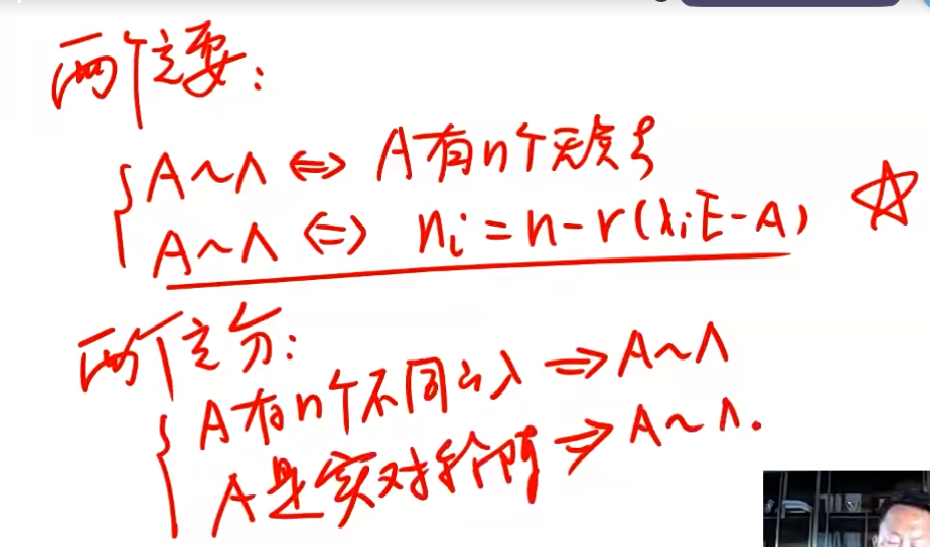 两个充要:
A~Λ ⇔ A有n个无关ξ
A~Λ ⇔ nᵢ=n-r(λᵢE-A) ☆
两个充分:
A有n个不同的λ ⇒ A~Λ
A是实对称阵 ⇒ A~Λ.